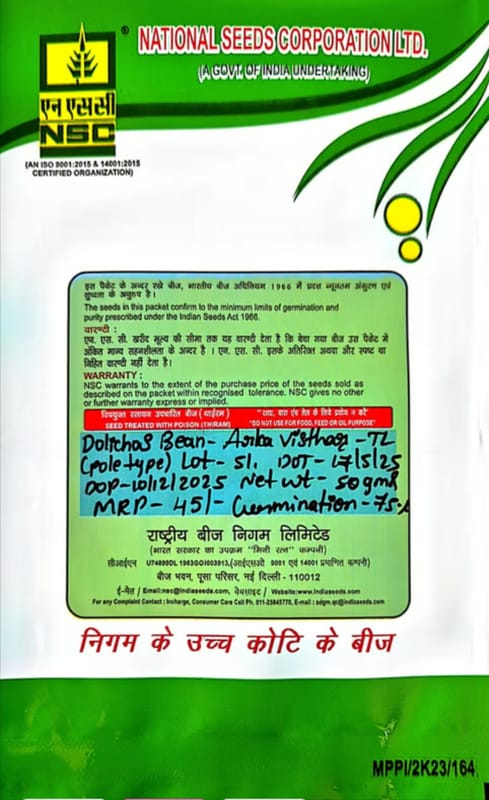 ®
NATIONAL SEEDS CORPORATION LTD.
(A GOVT. OF INDIA UNDERTAKING)
एन एस सी
NSC
(AN ISO 9001:2015 & 14001:2015
CERTIFIED ORGANIZATION)
इस पैकेट के अन्दर रखे बीज, भारतीय बीज अधिनियम 1966 में प्रदत्त न्यूनतम अंकुरण एवं
शुध्दता के अनुरुप है।
The seeds in this packet confirm to the minimum limits of germination and
purity prescribed under the Indian Seeds Act 1966.
वारण्टी :
एन. एस. सी. खरीद मूल्य की सीमा तक यह वारण्टी देता है कि बेचा गया बीज उस पैकेट में
अंकित मान्य सहनशीलता के अन्दर है । एन. एस. सी. इसके अतिरिक्त अथवा और स्पष्ट या
निहित वारण्टी नहीं देता है।
WARRANTY :
NSC warrants to the extent of the purchase price of the seeds sold as
described on the packet within recognised tolerance. NSC gives no other
or further warranty express or implied.
विषयुक्त रसायन उपचारित बीज (थाईरम)
SEED TREATED WITH POISON (THIRAM)
"खाद्य, चारा एंव तेल के लिये प्रयोग न करें"
"DO NOT USE FOR FOOD, FEED OR OIL PURPOSE"
Dolichos Bean- Arka Visthar - TL
(pole type) Lot - 51. DOT - 17/5/25
DOP - 10/12/2025 Net wt - 50 gms
MRP - 45/- Germination - 75.
राष्ट्रीय बीज निगम लिमिटेड
(भारत सरकार का उपक्रम "मिनी रत्न" कम्पनी)
सीआईएन U74899DL1963GOI003913,(आईएसओ 9001 एवं 14001 प्रमाणित कम्पनी)
बीज भवन, पूसा परिसर, नई दिल्ली - 110012
ई-मेल / Email:nsc@indiaseeds.com, वेबसाइट / Website:www.indiaseeds.com
For any Complaint Contact : Incharge, Consumer Care Cell Ph. 011-25843770, E-mail : sdgm.qc@indiaseeds.com
निगम के उच्च कोटि के बीज
MPPI/2K23/164